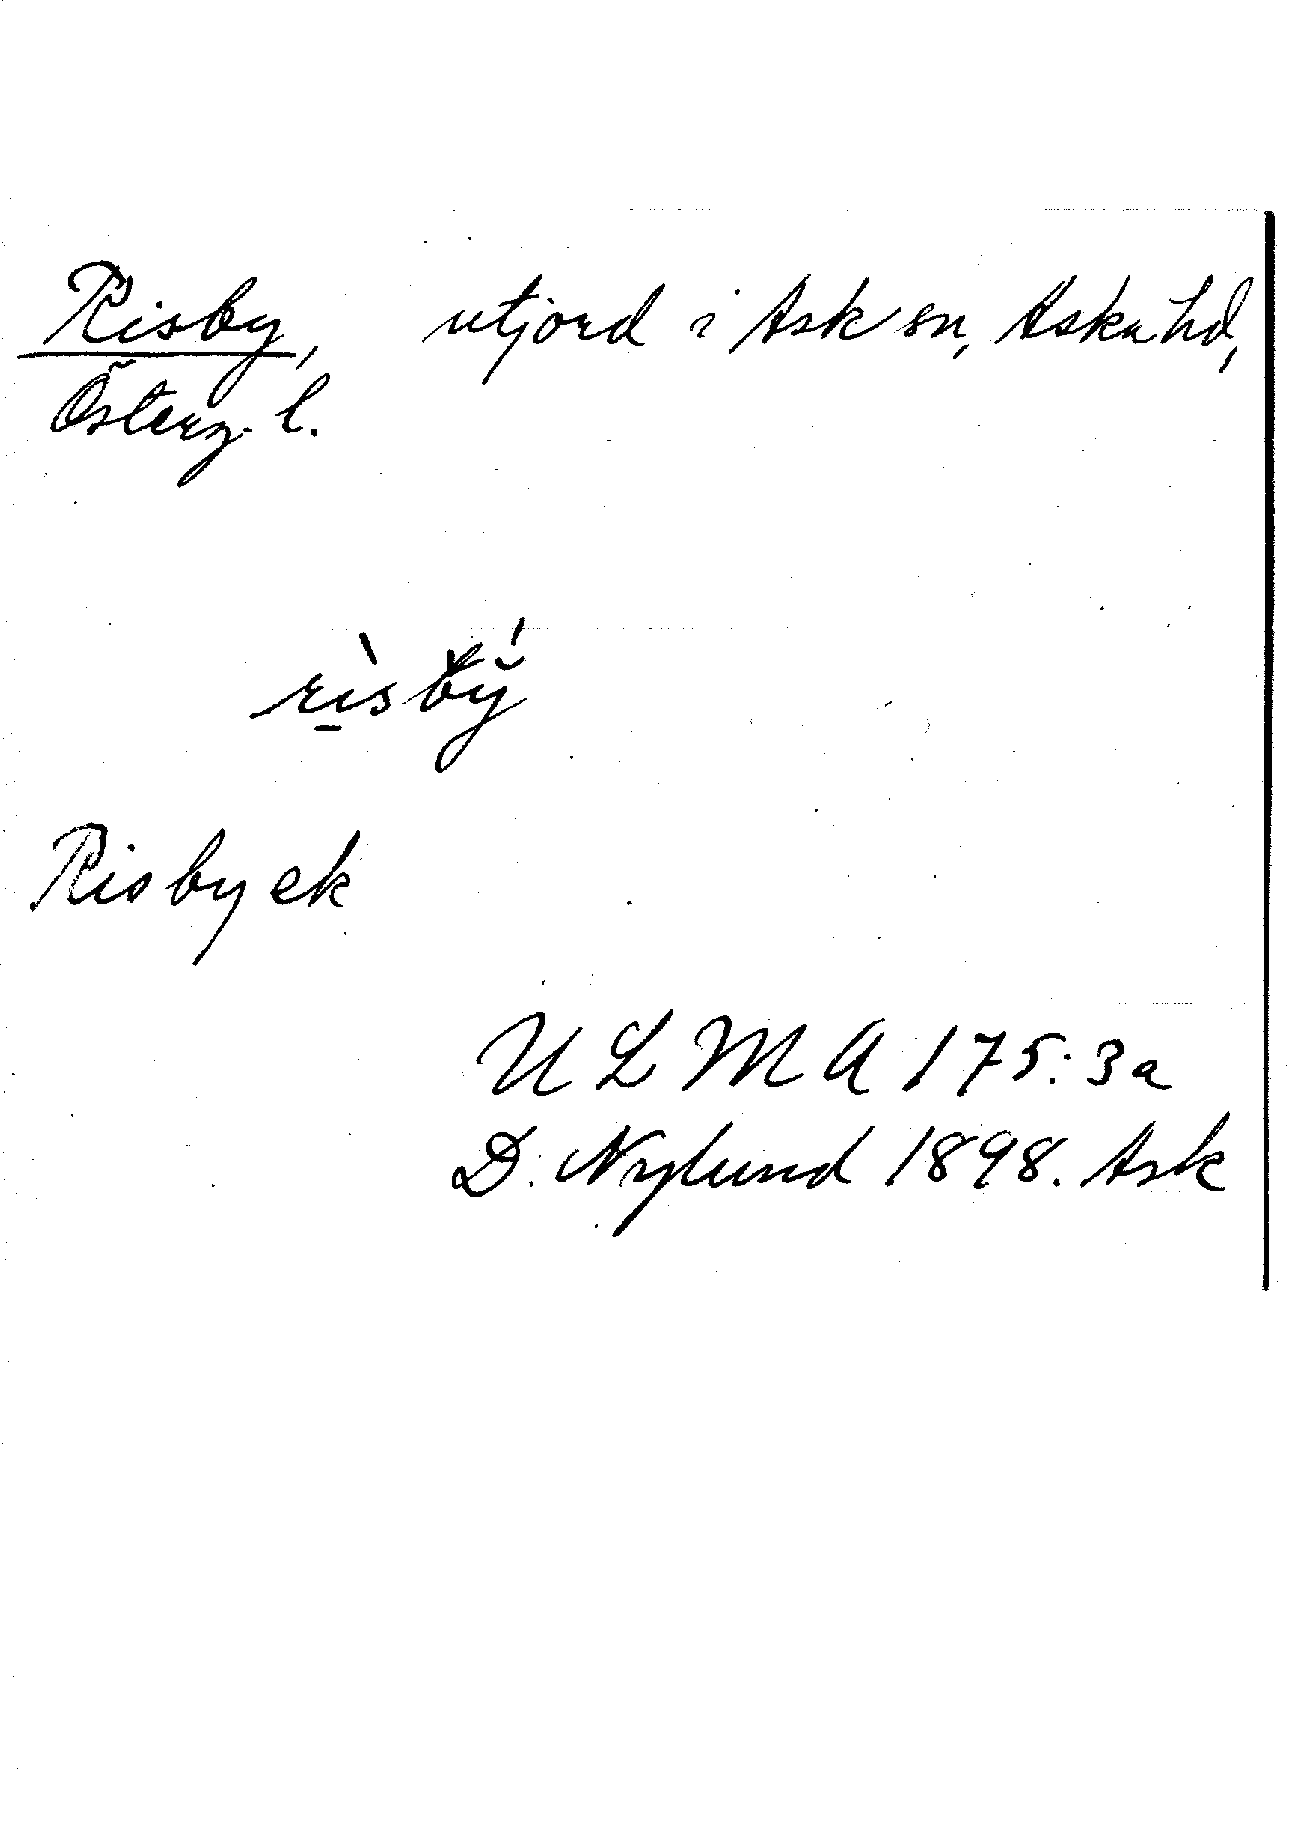 Risby, utjord i Ask sn, Aska hd,
Österg. l.
rìsby̆́
Risby ek
ULMA 175:3a
D. Nylund 1898. Ask